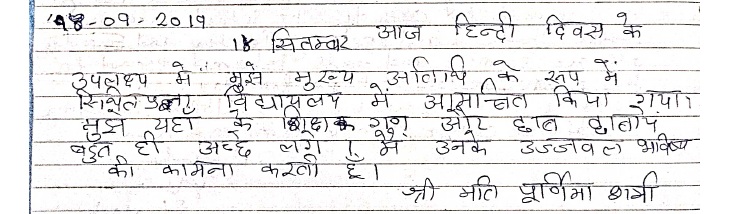 18-09-2019
18 सितम्बर आज हिन्दी दिवस के
उपलक्ष्य में मुझे मुख्य अतिथि के रूप में
स्थित विद्यायलय में आमन्त्रित किया गया।
मुझे यहाँ के शिक्षक गण और छात्र छात्रायें
बहुत ही अच्छे लगे। मैं उनके उज्जवल भविष्य
की कामना करती हूँ।
श्री मति पूर्णिमा